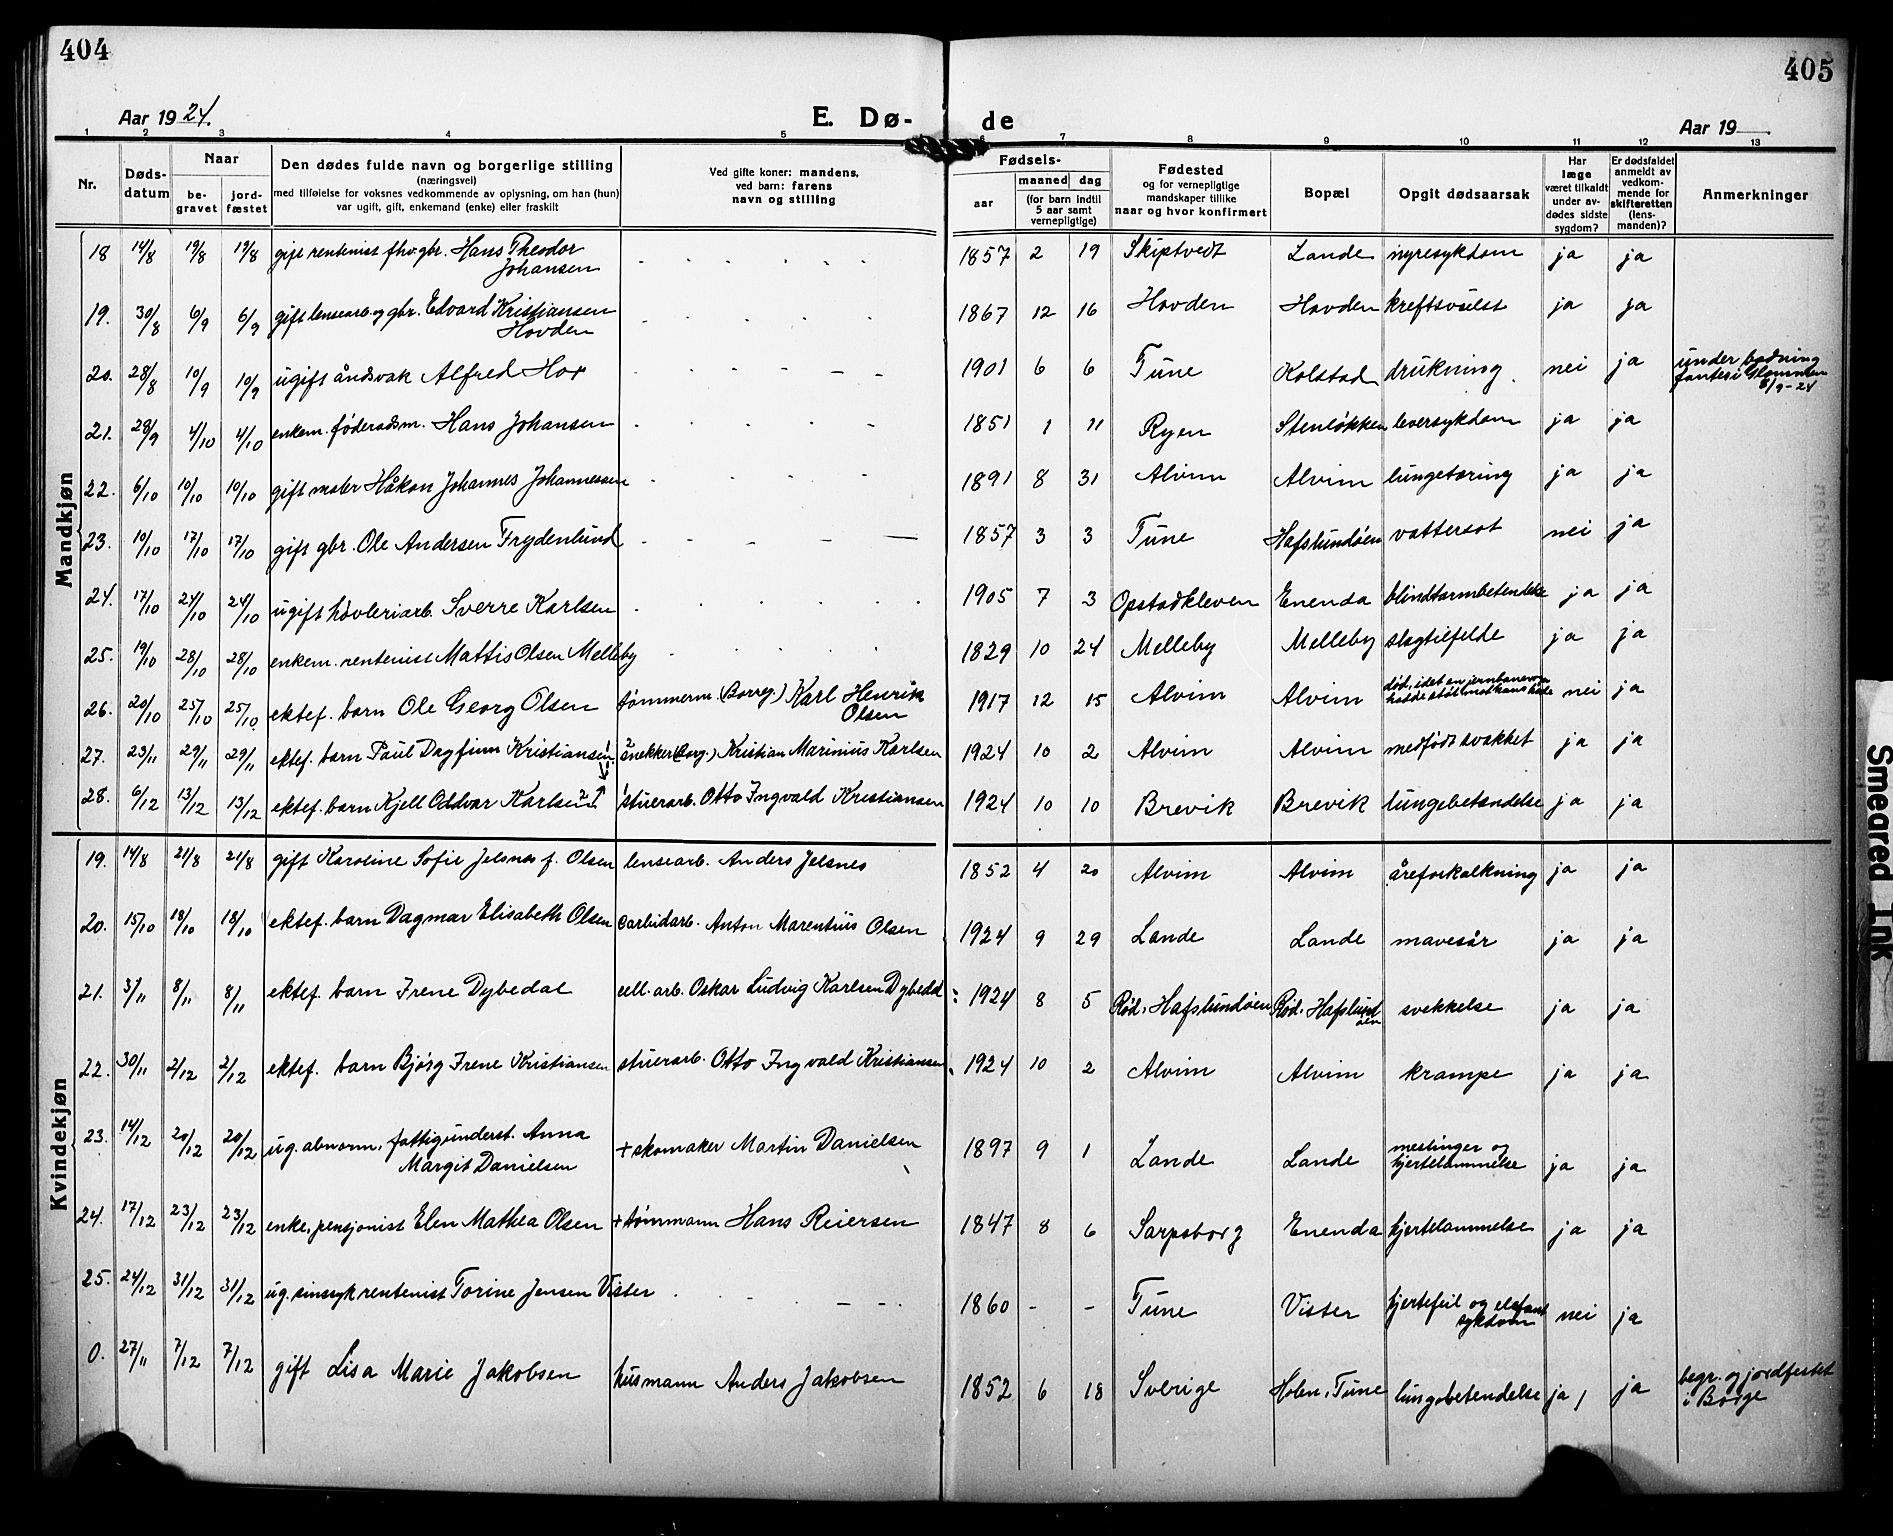 404
405
Aar 1924.
E. Dø-
de
Aar 19
1 2 3 4 5 6 7 8 9 10 11 12 13
Nr.
Døds-
datum
Naar
be-
gravet
jord-
fæstet
Den dødes fulde navn og borgerlige stilling
(næringsvei)
med tilføielse for voksnes vedkommende av oplysning, om han (hun)
var ugift, gift, enkemand (enke) eller fraskilt
Ved gifte koner: mandens,
ved barn: farens
navn og stilling
Fødsels-
aar
maaned
dag
(for barn indtil
5 aar samt
vernepligtige)
Fødested
og for vernepligtige
mandskaper tillike
naar og hvor konfirmert
Bopæl
Opgit dødsaarsak
Har
læge
været tilkaldt
under av-
dødes sidste
sygdom?
Er dødsfaldet
anmeldt av
vedkom-
mende for
skifteretten
(lens-
manden)?
Anmerkninger
Mandkjøn
18 14/8 19/8 19/8 gift rentenist fhv. gbr. Hans Theodor
Johansen
1857 2 19 Skiptvedt Lande nyresykdom ja ja
19. 30/8 6/9 6/9 gift lensearb. og gbr. Edvard Kristiansen
Hovden
1867 12 16 Hovden Hovden kreftsvulst ja ja
20. 28/8 10/9 10/9 ugift åndsvak Alfred Hov - - - - - 1901 6 6 Tune Kolstad drukning nei ja under badning
i Glommen
8/9-24
21. 28/9 4/10 4/10 enkem. føderådsm. Hans Johansen 1851 1 11 Ryen Stenløkken leversykdom ja ja
22. 6/10 10/10 10/10 gift maler Håkon Johannes Johannessen 1891 8 31 Alvim Alvim lungetæring ja ja
23. 10/10 17/10 17/10 gift gbr. Ole Andersen Frydenlund 1857 3 3 Tune Hafslundøen vattersot nei ja
24. 17/10 24/10 24/10 ugift høvleriarb. Sverre Karlsen 1905 7 3 Opstadkleven Enenda blindtarmbetendelse ja ja
25. 19/10 28/10 28/10 enkem. rentenist Mattis Olsen Melleby 1829 10 24 Melleby Melleby slagtilfelde ja ja
26. 20/10 25/10 25/10 ektef. barn Ole Georg Olsen tømmerm. (Borreg.) Karl Henrik
Olsen
1917 12 15 Alvim Alvim død, idet en jernbanevogn
hadde støtt mot hans hode nei ja
27. 23/11 29/11 29/11 ektef. barn Paul Dagfinn Kristiansen 1 2 snekker (Borg.) Kristian Marinius Karlsen 1924 10 2 Alvim Alvim medfødt svakket ja ja
28. 6/12 13/12 13/12 ektef. barn Kjell Oddvar Karlsen 2 1 stuerarb. Otto Ingvald Kristiansen 1924 10 10 Brevik Brevik lungebetendelse ja ja
Kvindekjøn
19. 14/8 21/8 21/8 gift Karoline Sofie Jelsnes f. Olsen lensearb. Anders Jelsnes 1852 4 20 Alvim Alvim åreforkalkning ja ja
20. 15/10 18/10 18/10 ektef. barn Dagmar Elisabeth Olsen carbidarb. Anton Marentius Olsen 1924 9 29 Lande Lande mavesår ja ja
21. 3/11 8/11 8/11 ektef. barn Irene Dybedal cell. arb. Oskar Ludvig Karlsen Dybedal 1924 8 5 Rød, Hafslundøen Rød, Hafslund
øen svekkelse ja ja
22. 30/11 2/12 2/12 ektef. barn Bjørg Irene Kristiansen stuerarb. Otto Ingvald Kristiansen 1924 10 2 Alvim Alvim krampe ja ja
23. 14/12 20/12 20/12 ug. abnorm, fattigunderst. Anna
Margit Danielsen
+ skomaker Martin Danielsen 1897 9 1 Lande Lande meslinger og
hjertelammelse ja ja
24. 17/12 23/12 23/12 enke, pensjonist Elen Mathea Olsen + tømmann Hans Reiersen 1847 8 6 Sarpsborg Enenda hjertelammelse ja ja
25. 24/12 31/12 31/12 ug. sinssyk rentenist Torine Jensen Vister 1860 - - Tune Vister hjertefeil og elefant
sykdom nei ja
0. 27/11 7/12 7/12 gift Lisa Marie Jakobsen husmann Anders Jakobsen 1852 6 18 Sverige Holen, Tune lungebetendelse ja ja begr. og jordfestet
i Borge
Smeared Ink